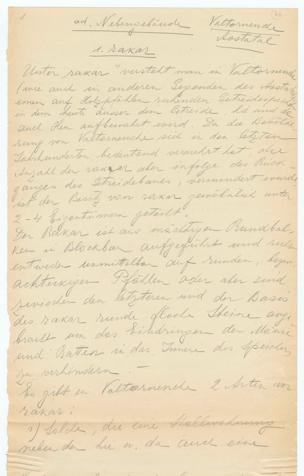 ad. Nebengebäude Valtornenche
Aostatal
1. raxar
Unter "raxar" versteht man in Valtornenche
(wie auch in anderen Gegenden des Aostatals)
einen auf Holzpfählen ruhenden Getreidespeicher
in dem heute ausser dem Getreide
auch Heu aufbewahrt wird. Da die Bevölke
rung von Valtornenche sich in den letzten
Jahrhunderten bedeutend vermehrt hat aber
Anzahl der raxar aber infolge des Rück-
ganges des Getreidebaues, vermindert wurde
ist der Besitz von raxar gewöhnlich unter
2-4 Eigentümern geteilt.
Der Raxar ist aus mächtigen Rundbal-
ken in Blockbau aufgeführt und ruht
entweder unmittelbar auf runden, bezw.
achteckigen Pfählen oder aber sind
zwischen den letzteren und der Basis
des raxar runde flache Steine ange
bracht um das Eindringen der Mäuse
und Ratten in das Innere des Speichers
zu verhindern. —
Es gibt in Valtornenche 2 Arten von
raxar:
a) Solche, die eine Stallwohnung
neben der hie u. da auch eine